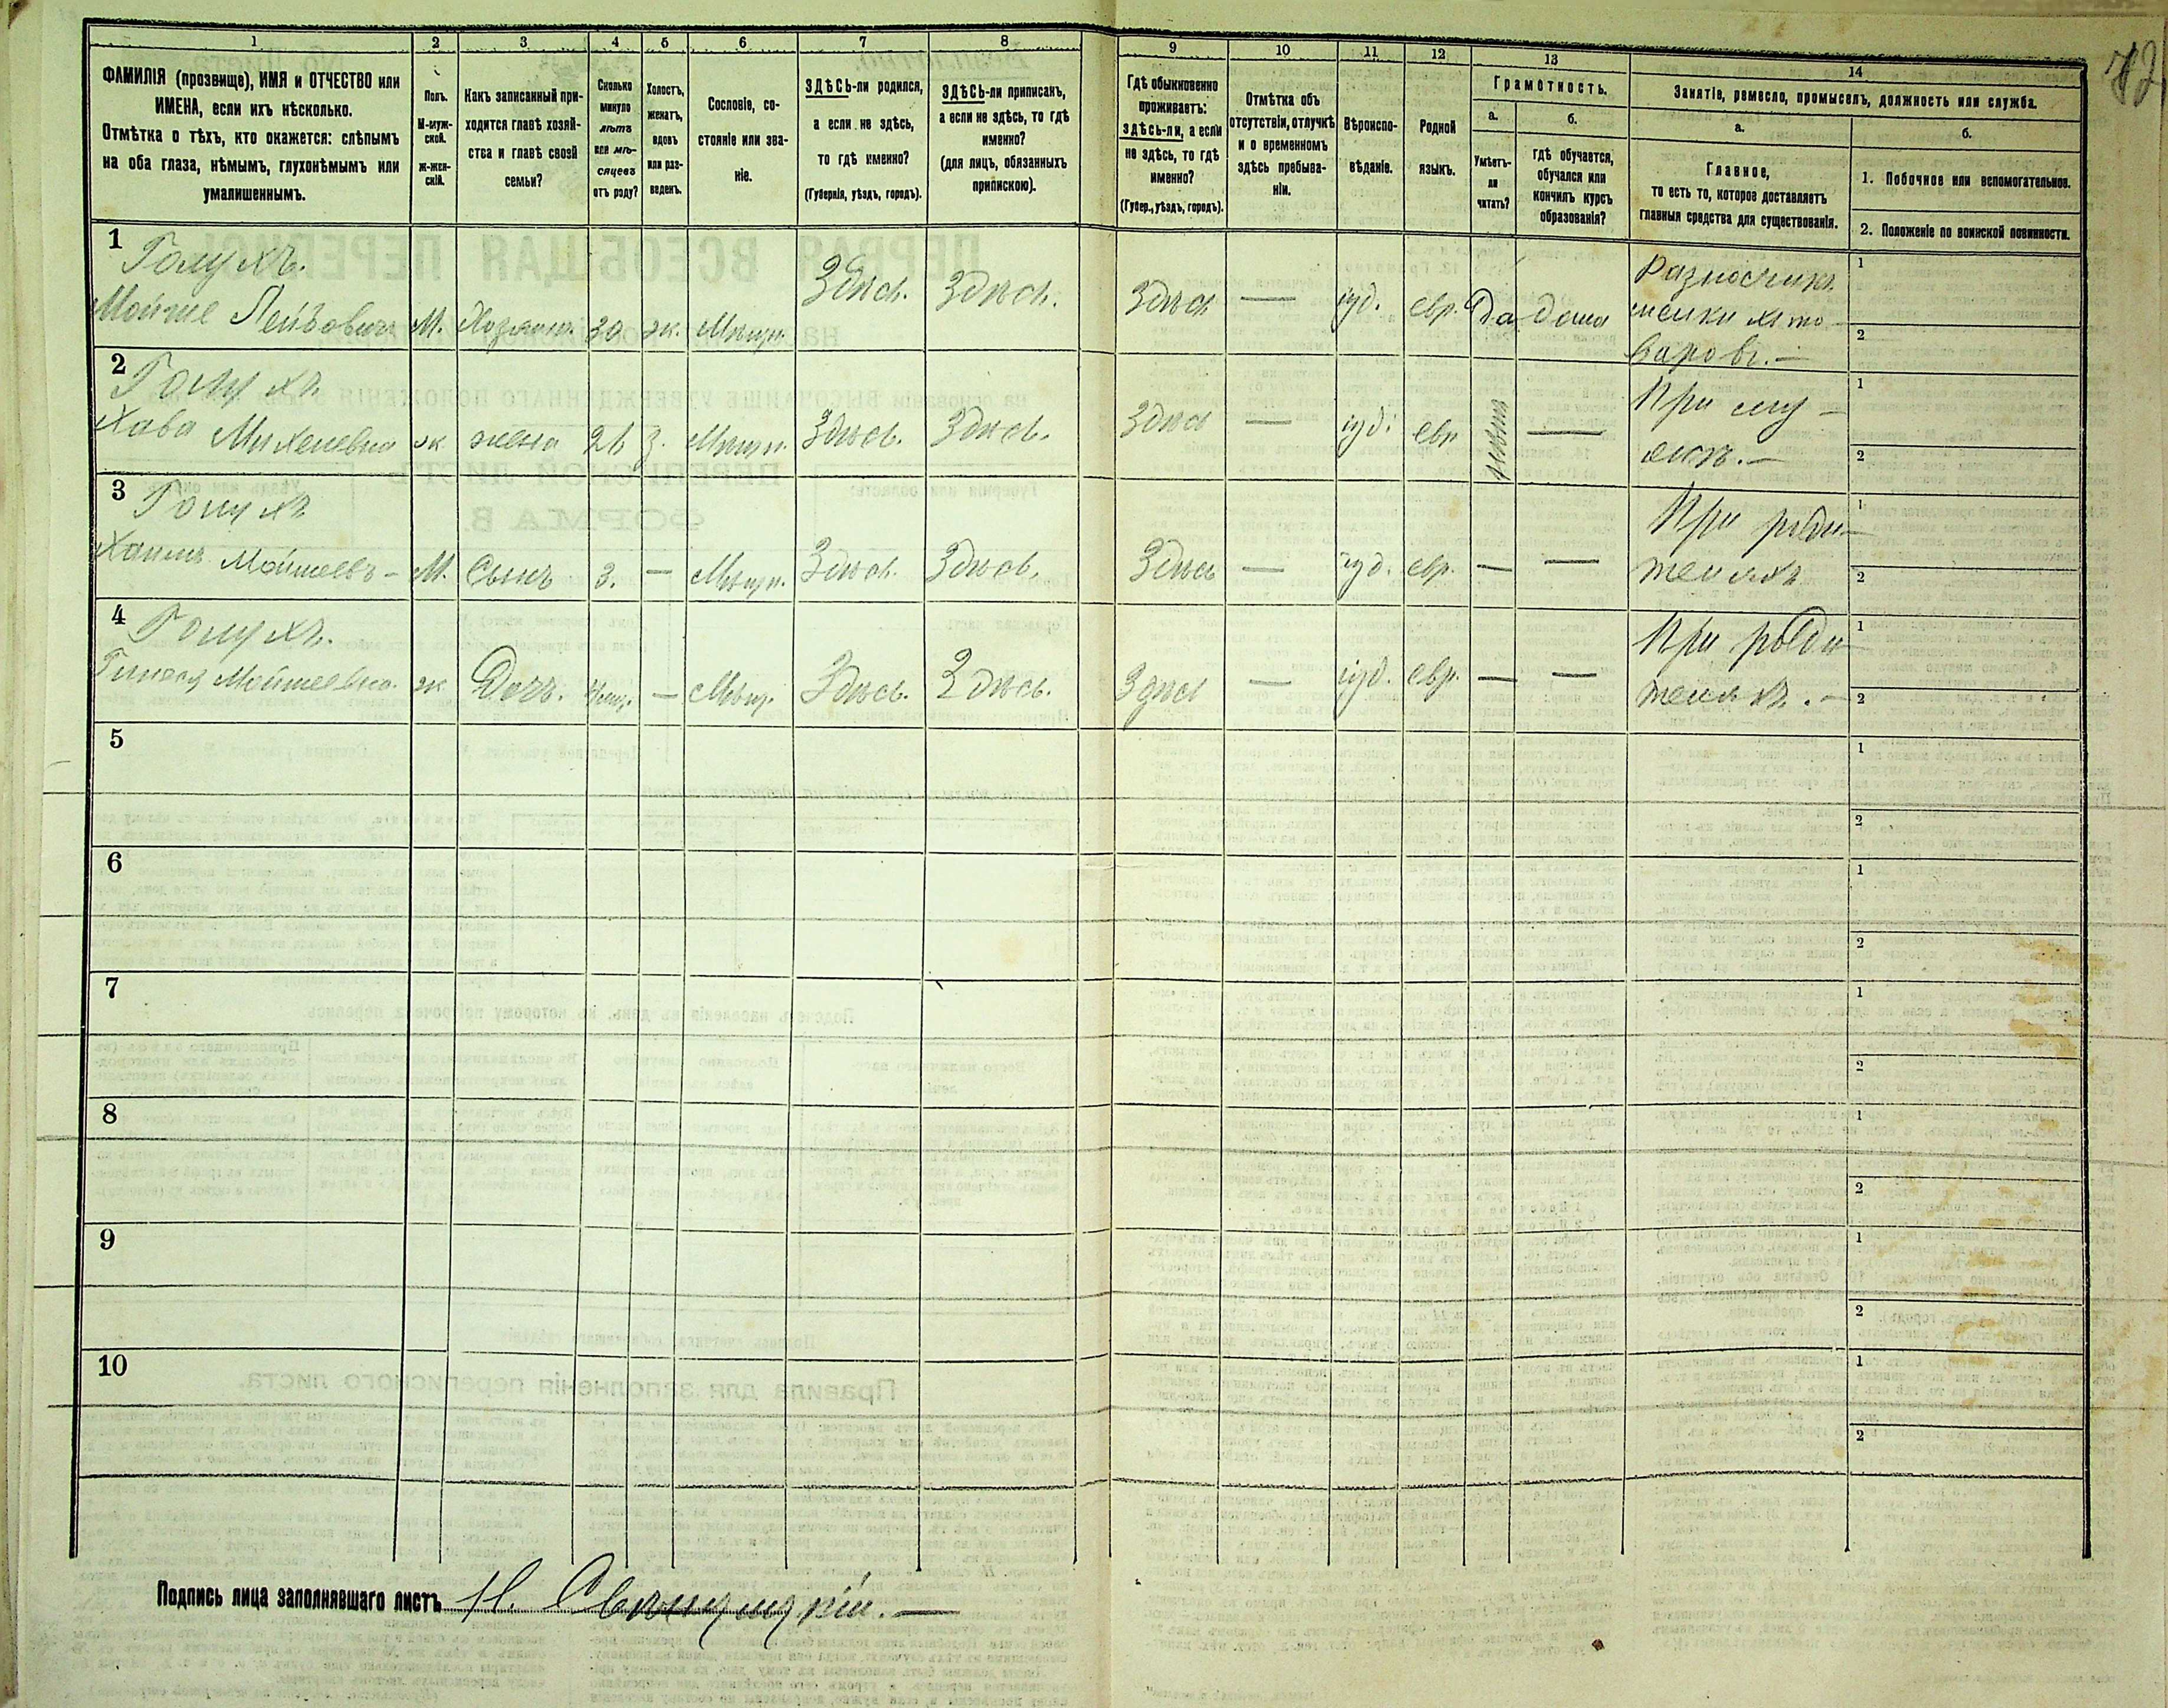 1 2 3 4 5 6 7 8 9 10 11 12 13 14
ФАМИЛІЯ (прозвище), ИМЯ и ОТЧЕСТВО или
ИМЕНА, если ихъ нѣсколько.
Отмѣтка о тѣхъ, кто окажется: слѣпымъ
на оба глаза, нѣмымъ, глухонѣмымъ или
умалишеннымъ.
Полъ.
М-муж-
ской.
Ж-жен-
скій.
Какъ записанный при-
ходится главѣ хозяй-
ства и главѣ своей
семьи?
Сколько
минуло
лѣтъ
или мѣ-
сяцевъ
отъ роду?
Холостъ,
женатъ,
вдовъ
или раз-
веденъ.
Сословіе, со-
стояніе или зва-
ніе.
ЗДѢСЬ-ли родился,
а если не здѣсь,
то гдѣ именно?
(Губернія, уѣздъ, городъ).
ЗДѢСЬ-ли приписанъ,
а если не здѣсь, то гдѣ
именно?
(для лицъ, обязанныхъ
припискою).
Гдѣ обыкновенно
проживаетъ:
ЗДѢСЬ-ли, а если
не здѣсь, то гдѣ
именно?
(Губер., уѣздъ, городъ).
Отмѣтка объ
отсутствіи, отлучкѣ
и о временномъ
здѣсь пребыва-
ніи.
Вѣроиспо-
вѣданіе.
Родной
языкъ.
Грамотность.
а.
Умѣетъ-
ли
читать?
б.
гдѣ обучается,
обучался или
кончилъ курсъ
образованія?
Занятіе, ремесло, промыселъ, должность или служба.
а.
Главное,
то есть то, которое доставляетъ
главныя средства для существованія.
б.
1. Побочное или вспомогательное.
2. Положеніе по воинской повинности.
1 Голухъ.
Мойше Лейбовичъ М. Хозяинъ. 30 ж. Мѣщан. Здѣсь. Здѣсь. Здѣсь — іуд. евр. Да дома Разносчикъ
мелкихъ то-
варовъ. —
1
2
2 Голухъ
Хава Михелевна ж жена 26 з. Мѣщан. Здѣсь. Здѣсь. Здѣсь — іуд. евр — При му-
жѣ. —
1
2
3 Голухъ
Хаимъ Мойшевъ - М. Сынъ 3. — Мѣщан. Здѣсь. Здѣсь. Здѣсь — іуд. евр. — — При роди-
теляхъ
1
2
4 Голухъ.
Мойшевна. ж Дочь. — Мѣщ. Здѣсь. Здѣсь. Здѣсь — іуд. евр. — — При роди-
теляхъ. —
1
2
5
1
2
6
1
2
7
1
2
8
1
2
9
1
2
10
1
2
Подпись лица заполнявшаго листъ